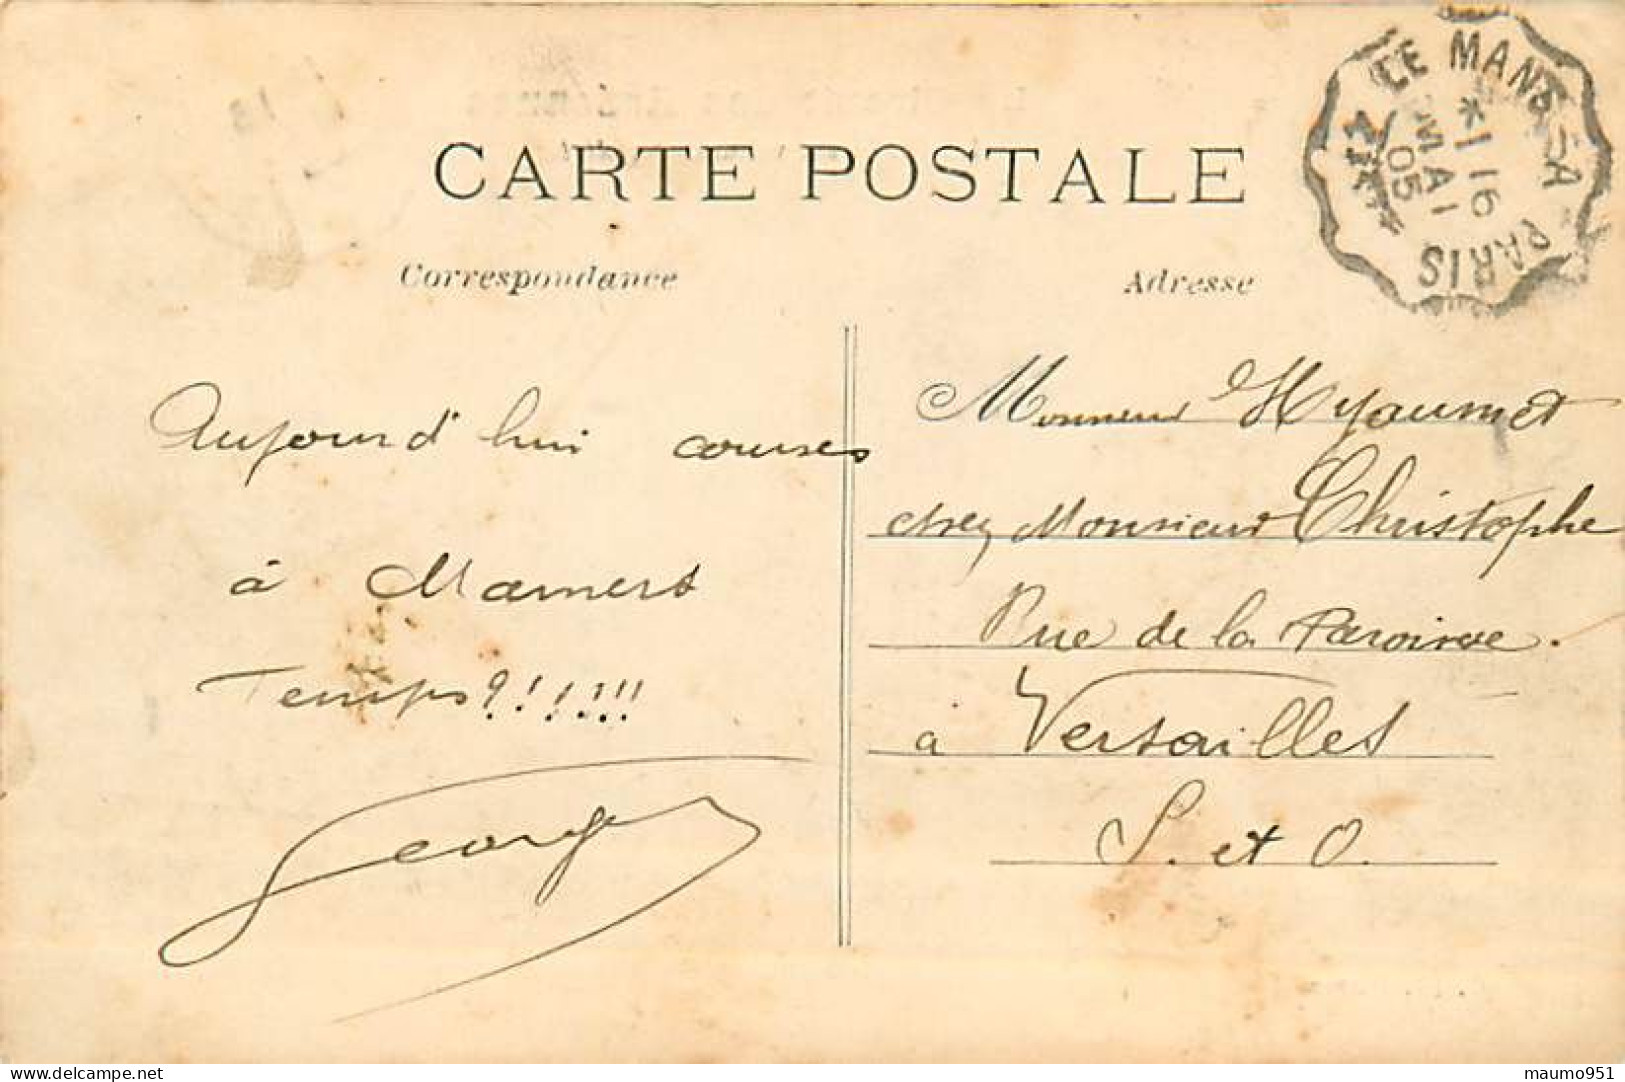 CARTE POSTALE
Correspondance
Adresse
LE MANS A PARIS
*1 16
MAI
05
Aujourd'hui courses
à Mamers
Temps?!!!!!!
Georges
Monsieur Hyaumet
chez Monsieur Christophe
Rue de la Paroisse.
à Versailles
S. et O.
delcampe.net
maumo951